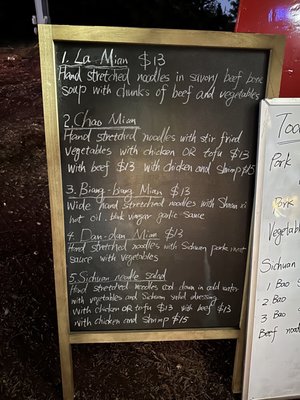 1. La Mian $13
Hand stretched noodles in savory beef bone
soup with chunks of beef and vegetables
2. Chao Mian
Hand stretched noodles with stir fried
vegetables with chicken OR tofu $13
with beef $13 with chicken and shrimp $15
3. Biang-biang Mian $13
Wide hand stretched noodles with Shan xi
hot oil. blak vinegar garlic sauce
4. Dan-dan Mian $13
Hand stretched noodles with Sichuan pork
sauce with vegetables
5. Sichuan noodle salad
Hand stretched noodles cool down in cold water
with vegetables and Sichuan salad dressing
with chicken OR tofu $13 with beef $13
with chicken and shrimp $15
Pork
Pork
Sichuan
1 Bao
2 Bao
3 Bao
Beef